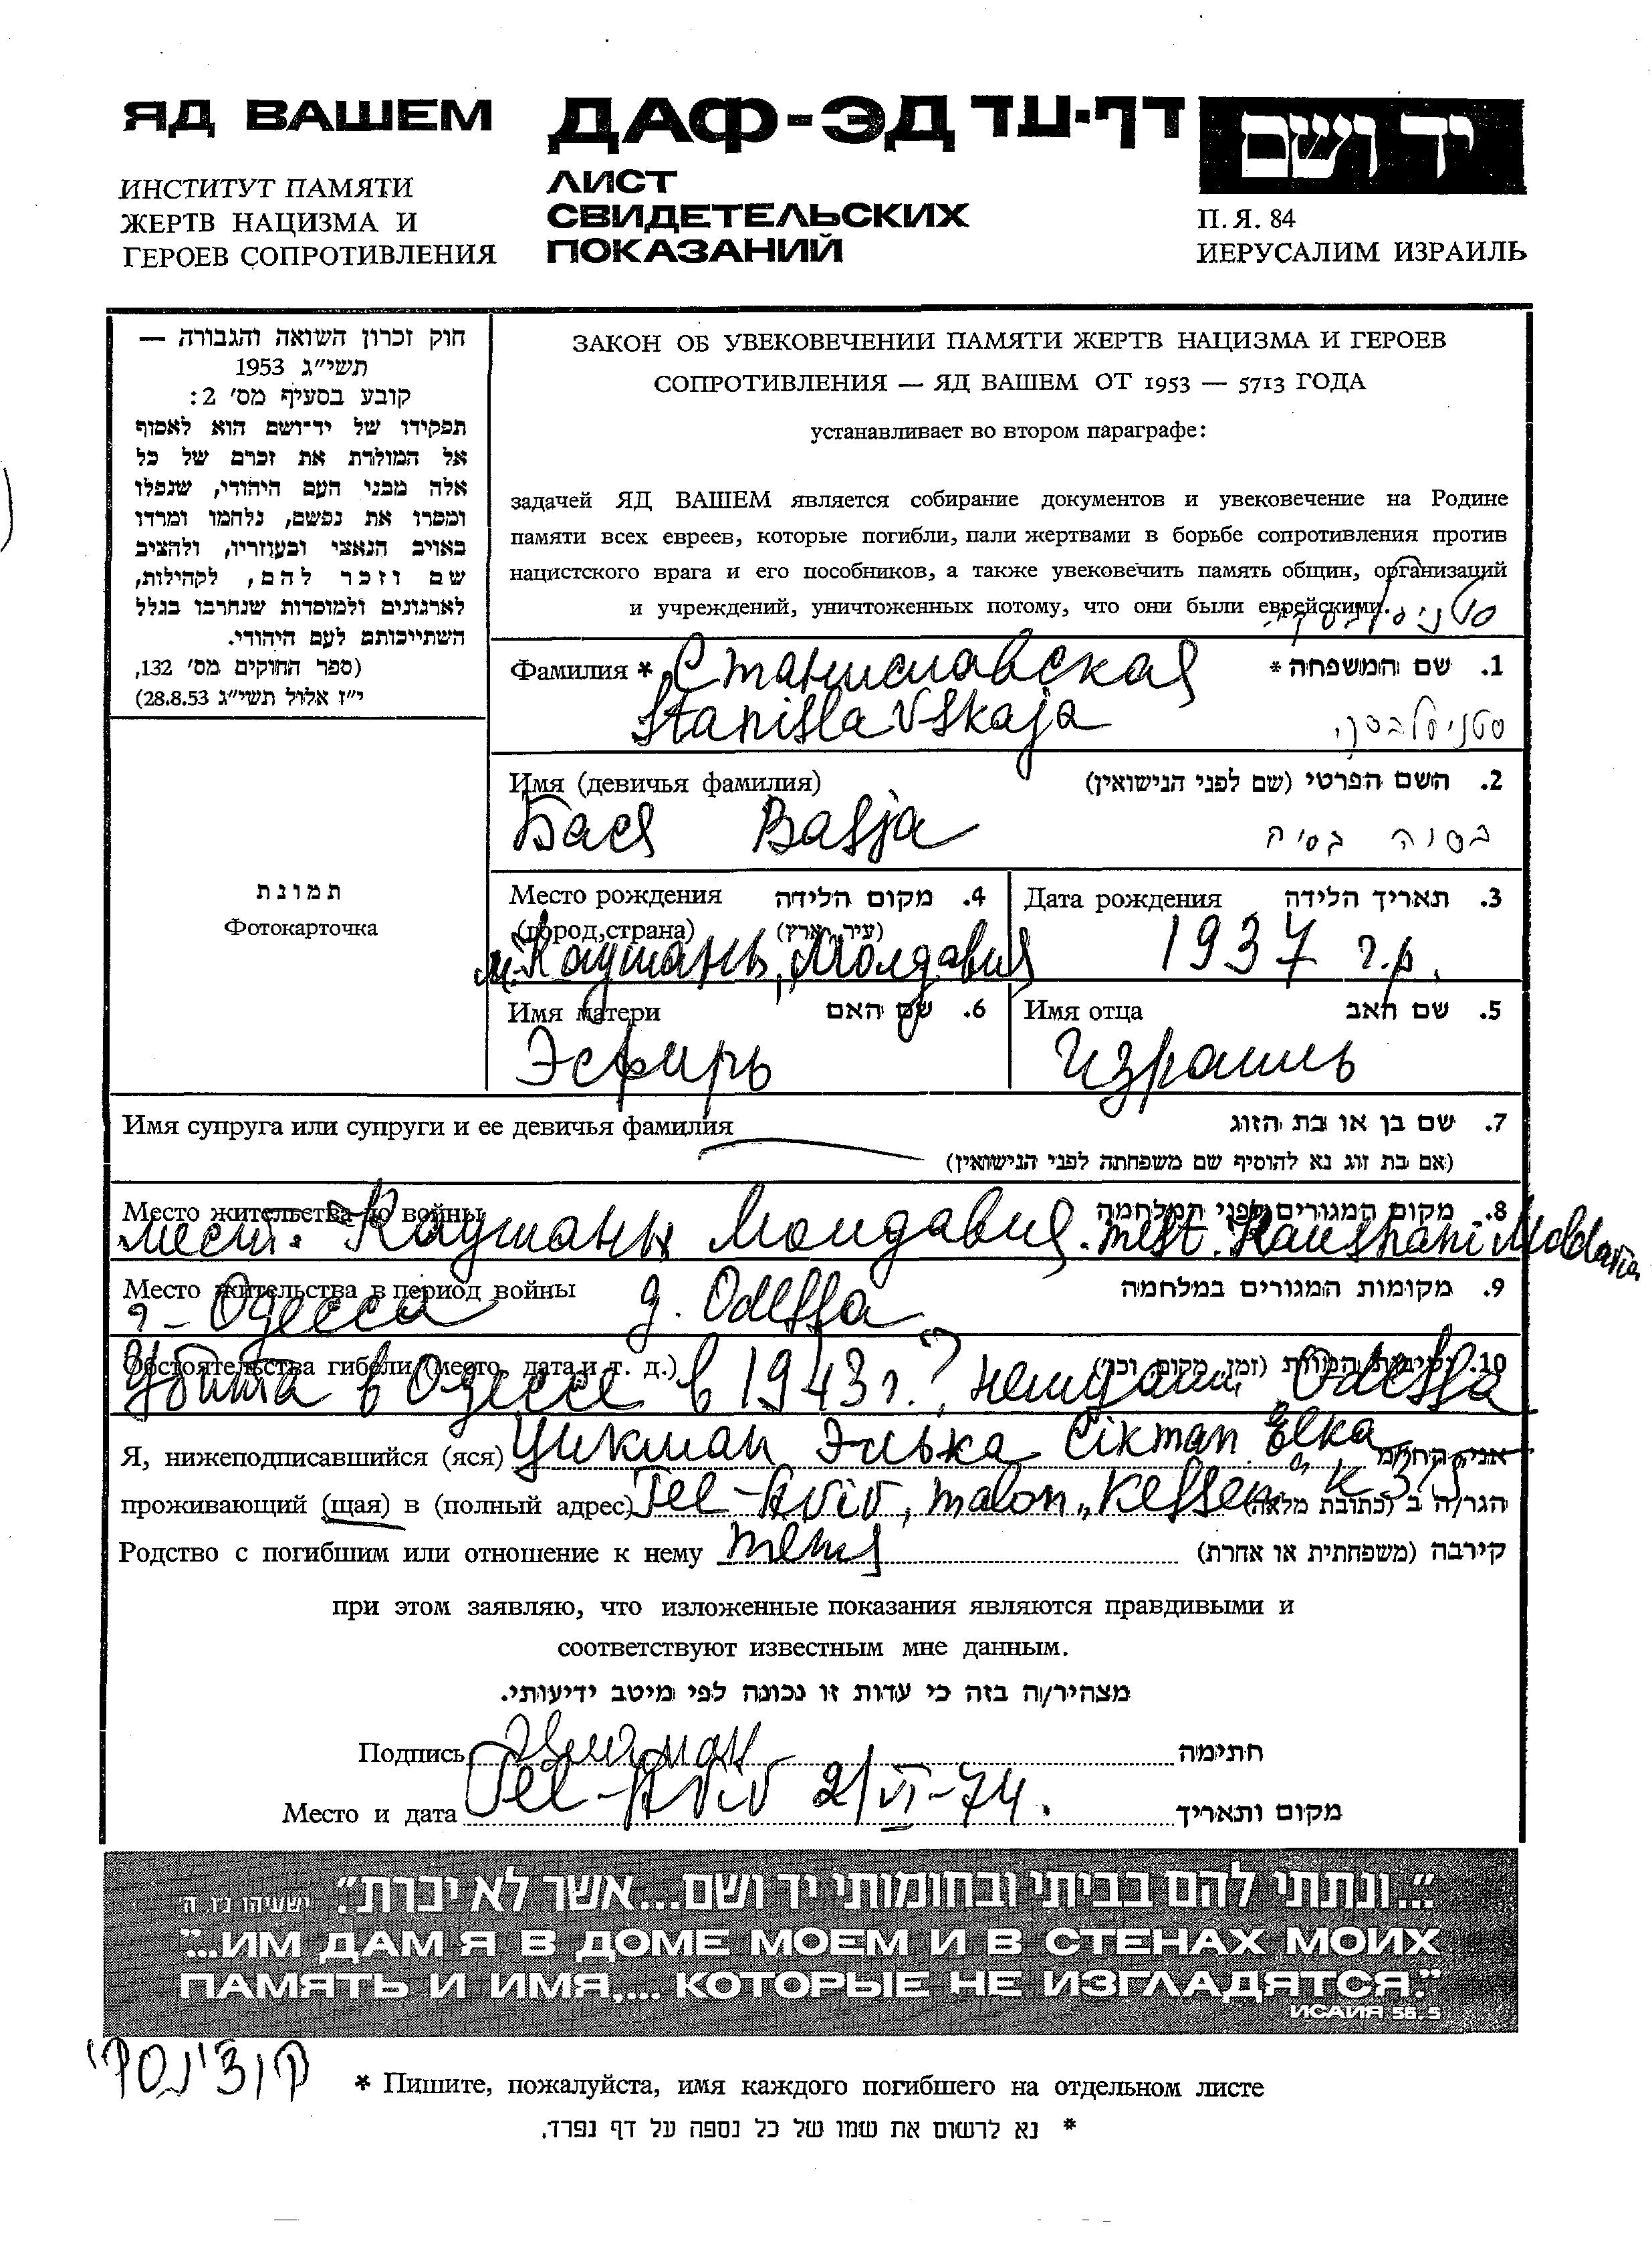 ЯД ВАШЕМ
ИНСТИТУТ ПАМЯТИ
ЖЕРТВ НАЦИЗМА И
ГЕРОЕВ СОПРОТИВЛЕНИЯ
ДАФ-ЭД דף-עד
ЛИСТ
СВИДЕТЕЛЬСКИХ
ПОКАЗАНИЙ
יד ושם
П. Я. 84
ИЕРУСАЛИМ ИЗРАИЛЬ
חוק זכרון השואה והגבורה —
תשי"ג 1953
קובע בסעיף מס' 2:
תפקידו של יד-ושם הוא לאסוף
אל המולדת את זכרם של כל
אלה מבני העם היהודי, שנפלו
ומסרו את נפשם, נלחמו ומרדו
באויב הנאצי ובעוזריו, ולהציב
שם וזכר להם, לקהילות,
לארגונים ולמוסדות שנחרבו בגלל
השתייכותם לעם היהודי.
(ספר החוקים מס' 132,
י"ז אלול תשי"ג 28.8.53)
תמונת
Фотокарточка
ЗАКОН ОБ УВЕКОВЕЧЕНИИ ПАМЯТИ ЖЕРТВ НАЦИЗМА И ГЕРОЕВ
СОПРОТИВЛЕНИЯ — ЯД ВАШЕМ ОТ 1953 — 5713 ГОДА
устанавливает во втором параграфе:
задачей ЯД ВАШЕМ является собирание документов и увековечение на Родине
памяти всех евреев, которые погибли, пали жертвами в борьбе сопротивления против
нацистского врага и его пособников, а также увековечить память общин, организаций
и учреждений, уничтоженных потому, что они были еврейскими.
Фамилия * Станиславская 1. שם המשפחה *
Stanislavskaja סטניסלבסקי
Имя (девичья фамилия) 2. השם הפרטי (שם לפני הנישואין)
Бася Basja בסיה
Место рождения 4. מקום הלידה
(город, страна) (עיר, ארץ)
м. Каушань, Молдавия
Дата рождения 3. תאריך הלידה
1937 г.р.
Имя матери 6. שם האם
Эсфирь
Имя отца 5. שם האב
Израиль
Имя супруга или супруги и ее девичья фамилия 7. שם בן או בת הזוג
(אם בת זוג נא להוסיף שם משפחתה לפני הנישואין)
Место жительства до войны 8. מקום המגורים לפני המלחמה
мест. Каушаны Молдавия. mest. Kaushani Moldavia
Место жительства в период войны 9. מקומות המגורים במלחמה
г- Одесса g. Odessa
Обстоятельства гибели (место, дата и т. д.) 10. נסיבות המוות (זמן, מקום וכו')
Убита в Одессе в 1943 г.? Odessa
Я, нижеподписавшийся (яся) Цикман Элька Cikman Elka אני, החתום
проживающий (щая) в (полный адрес) Tel-Aviv, malon „Kessen" к 375 הגר/ה ב (כתובת מלאה)
Родство с погибшим или отношение к нему тетя קירבה (משפחתית או אחרת)
при этом заявляю, что изложенные показания являются правдивыми и
соответствуют известным мне данным.
מצהיר/ה בזה כי עדות זו נכונה לפי מיטב ידיעותי.
Подпись חתימה
Место и дата Tel-Aviv 2/VI-74. מקום ותאריך
"...ונתתי להם בביתי ובחומותי יד ושם...אשר לא יכרת." ישעיהו נ"ו ה'
"...ИМ ДАМ Я В ДОМЕ МОЕМ И В СТЕНАХ МОИХ
ПАМЯТЬ И ИМЯ.... КОТОРЫЕ НЕ ИЗГЛАДЯТСЯ."
ИСАИЯ 56. 5
* Пишите, пожалуйста, имя каждого погибшего на отдельном листе
* נא לרשום את שמו של כל נספה על דף נפרד.